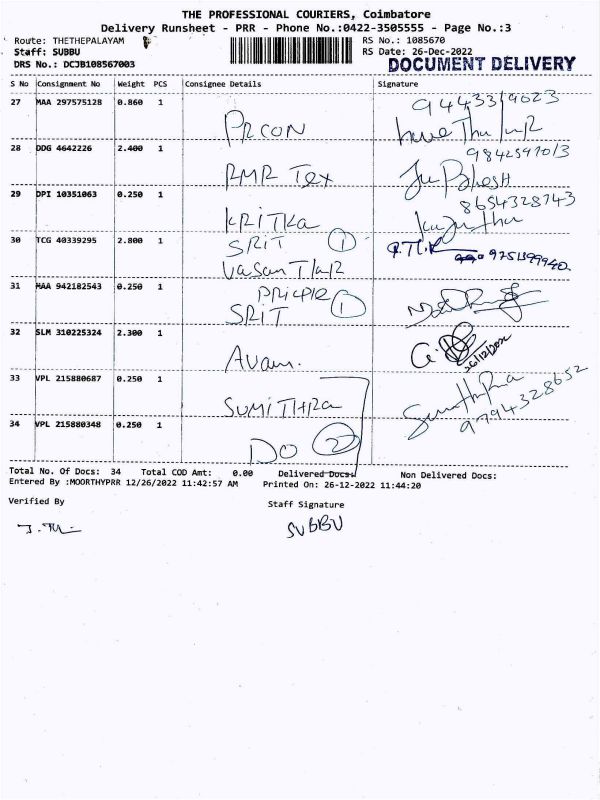 THE PROFESSIONAL COURIERS, Coimbatore
Delivery Runsheet - PRR - Phone No.:0422-3505555 - Page No.:3
Route: THETHEPALAYAM RS No.: 1085670
Staff: SUBBU RS Date: 26-Dec-2022
DRS No.: DCJB108567003 DOCUMENT DELIVERY
S No Consignment No Weight PCS Consignee Details Signature
27 MAA 297575128 0.860 1
PRCON
28 DDG 4642226 2.400 1
RMR Tex
29 DPI 10351063 0.250 1
8654328743
KRITKa
30 TCG 40339295 2.800 1
SRIT 1
Vasan
31 MAA 942182543 0.250 1
SRIT 1
32 SLM 310225324 2.300 1
26/12/2022
Avam.
33 VPL 215880687 0.250 1
SUMITHRA
9794328652
34 VPL 215880348 0.250 1
DO 2
Total No. Of Docs: 34 Total COD Amt: 0.00 Delivered Docs: Non Delivered Docs:
Entered By :MOORTHYPRR 12/26/2022 11:42:57 AM Printed On: 26-12-2022 11:44:20
Verified By Staff Signature
SUBBU